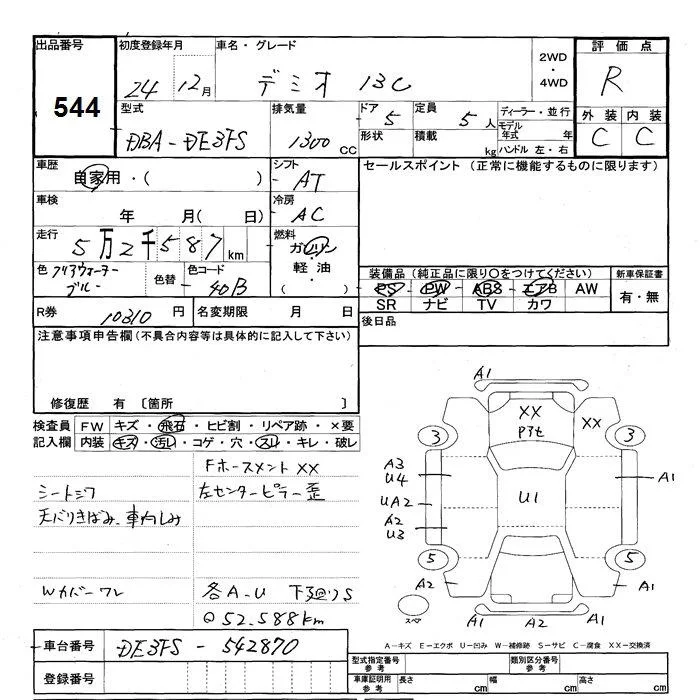 出品番号
初度登録年月
車名・グレード
2WD
・
4WD
評価点
544
24
12月
デミオ 13C
R
型式
排気量
ドア
5
定員
5人
ディーラー・並行
外装
内装
DBA-DE3FS
1300 CC
形状
積載
kg
モデル年式
年
ハンドル 左・右
C
C
車歴
自家用・( )
シフト
AT
セールスポイント (正常に機能するものに限ります)
車検
年 月( 日)
冷房
AC
走行
5万2千587km
燃料
ガソリン
・
軽油
・
( )
色
クリアウォーターブルー
色替
色コード
40B
装備品 (純正品に限り〇をつけてください)
新車保証書
PS PW ABS エアB AW
SR ナビ TV カワ
有・無
R券
10310 円
名変期限
月 日
後日品
注意事項申告欄 (不具合内容等は具体的に記入して下さい)
修復歴 有 〔箇所 〕
検査員
記入欄
FW
キズ・飛石・ヒビ割・リペア跡・×要
内装
キズ・汚レ・コゲ・穴・スレ・キレ・破レ
Fホースメント XX
シートシワ
左センターピラー歪
天バリきばみ、車内しみ
Wカバーワレ
各A-U 下廻りS
52.588km
A1
XX
XX
3
3
A3
U4
UA2
A2
U3
U1
A1
5
5
A2
A1
スペ
A1
A2
A1
車台番号
DE3FS - 542870
A-キズ E-エクボ U-凹み W-補修跡 S-サビ C-腐食 XX-交換済
登録番号
型式指定番号
参考
類別区分番号
参考
車庫証明用
参考
長さ
cm
幅
cm
高さ
cm